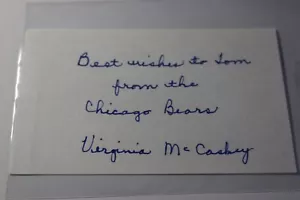 Best wishes to Tom
from the
Chicago Bears
Virginia McCaskey